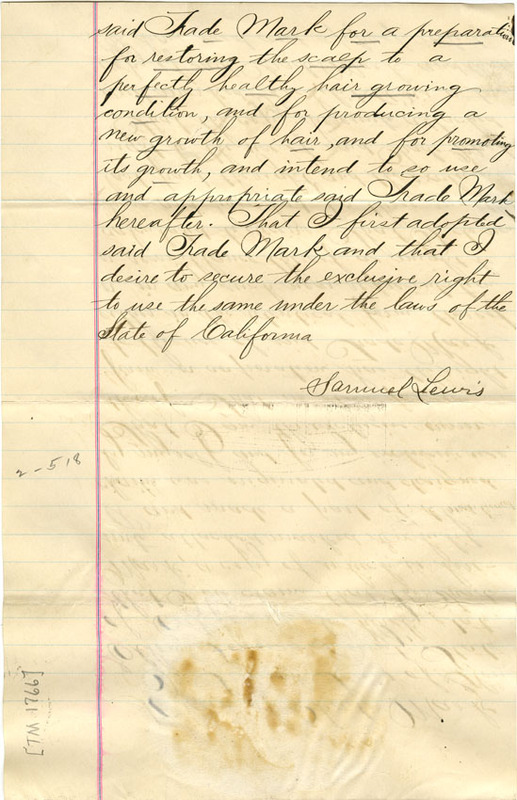 said Trade Mark for a preparation
for restoring the scalp to a
perfectly healthy hair growing
condition, and for producing a
new growth of hair, and for promoting
its growth, and intend to so use
and appropriate said Trade Mark
hereafter. That I first adopted
said Trade Mark and that I
desire to secure the exclusive right
to use the same under the laws of the
State of California
Samuel Lewis
2-518
[TM 1766]